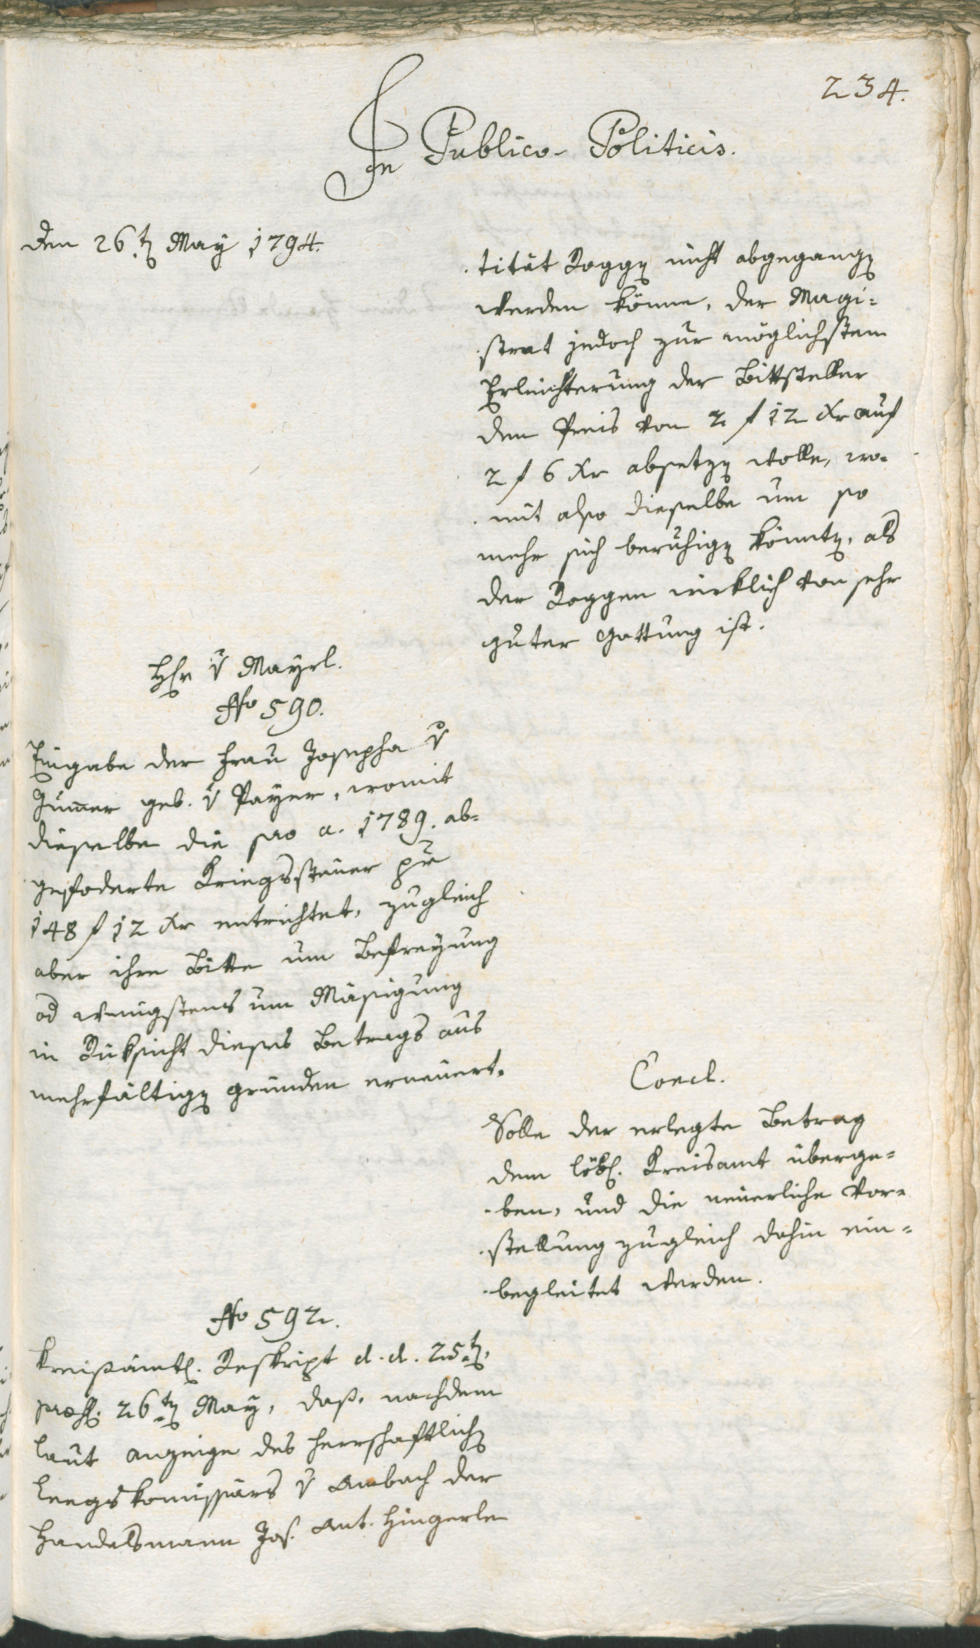 234.
In Publico-Politicis.
Den 26.t[en] May 1794.
tität Rogg[en] nicht abgegang[en]
werden könne, der Magi=
strat jedoch zur möglichsten
Erleichterung der Bittsteller
den Preis von 2 f 12 Xr auf
2 f 6 Xr absetz[en] wolle, wo-
mit also dieselbe um so
mehr sich beruhig[en] könnt[en], als
der Roggen wirklich von sehr
guter Gattung ist.
H[er]r v Mayrl.
No 590.
Eingabe der Frau Josepha v
Gum̄er geb. v Payer, womit
dieselbe die pro a. 1789. ab=
gefoderte Kriegssteuer pr
148 f 12 Xr entrichtet, zugleich
aber ihre Bitte um Befreyung
od wenigstens um Mäsigung
in Rüksicht dieses Betrags aus
mehrfältig[en] Gründen erneuert.
Concl.
Solle der erlegte Betrag
dem löbl. Kreisamt überge=
ben, und die neuerliche Vor=
stellung zugleich dahin ein=
begleitet werden.
No 592.
Kreisämtl. Reskript d. d. 25t[en],
præs. 26t[en] May, daß, nachdem
laut Anzeige des herrschaftlich[en]
Leegskomissärs v Ambach der
Handelsmann Jos. Ant. Hingerle